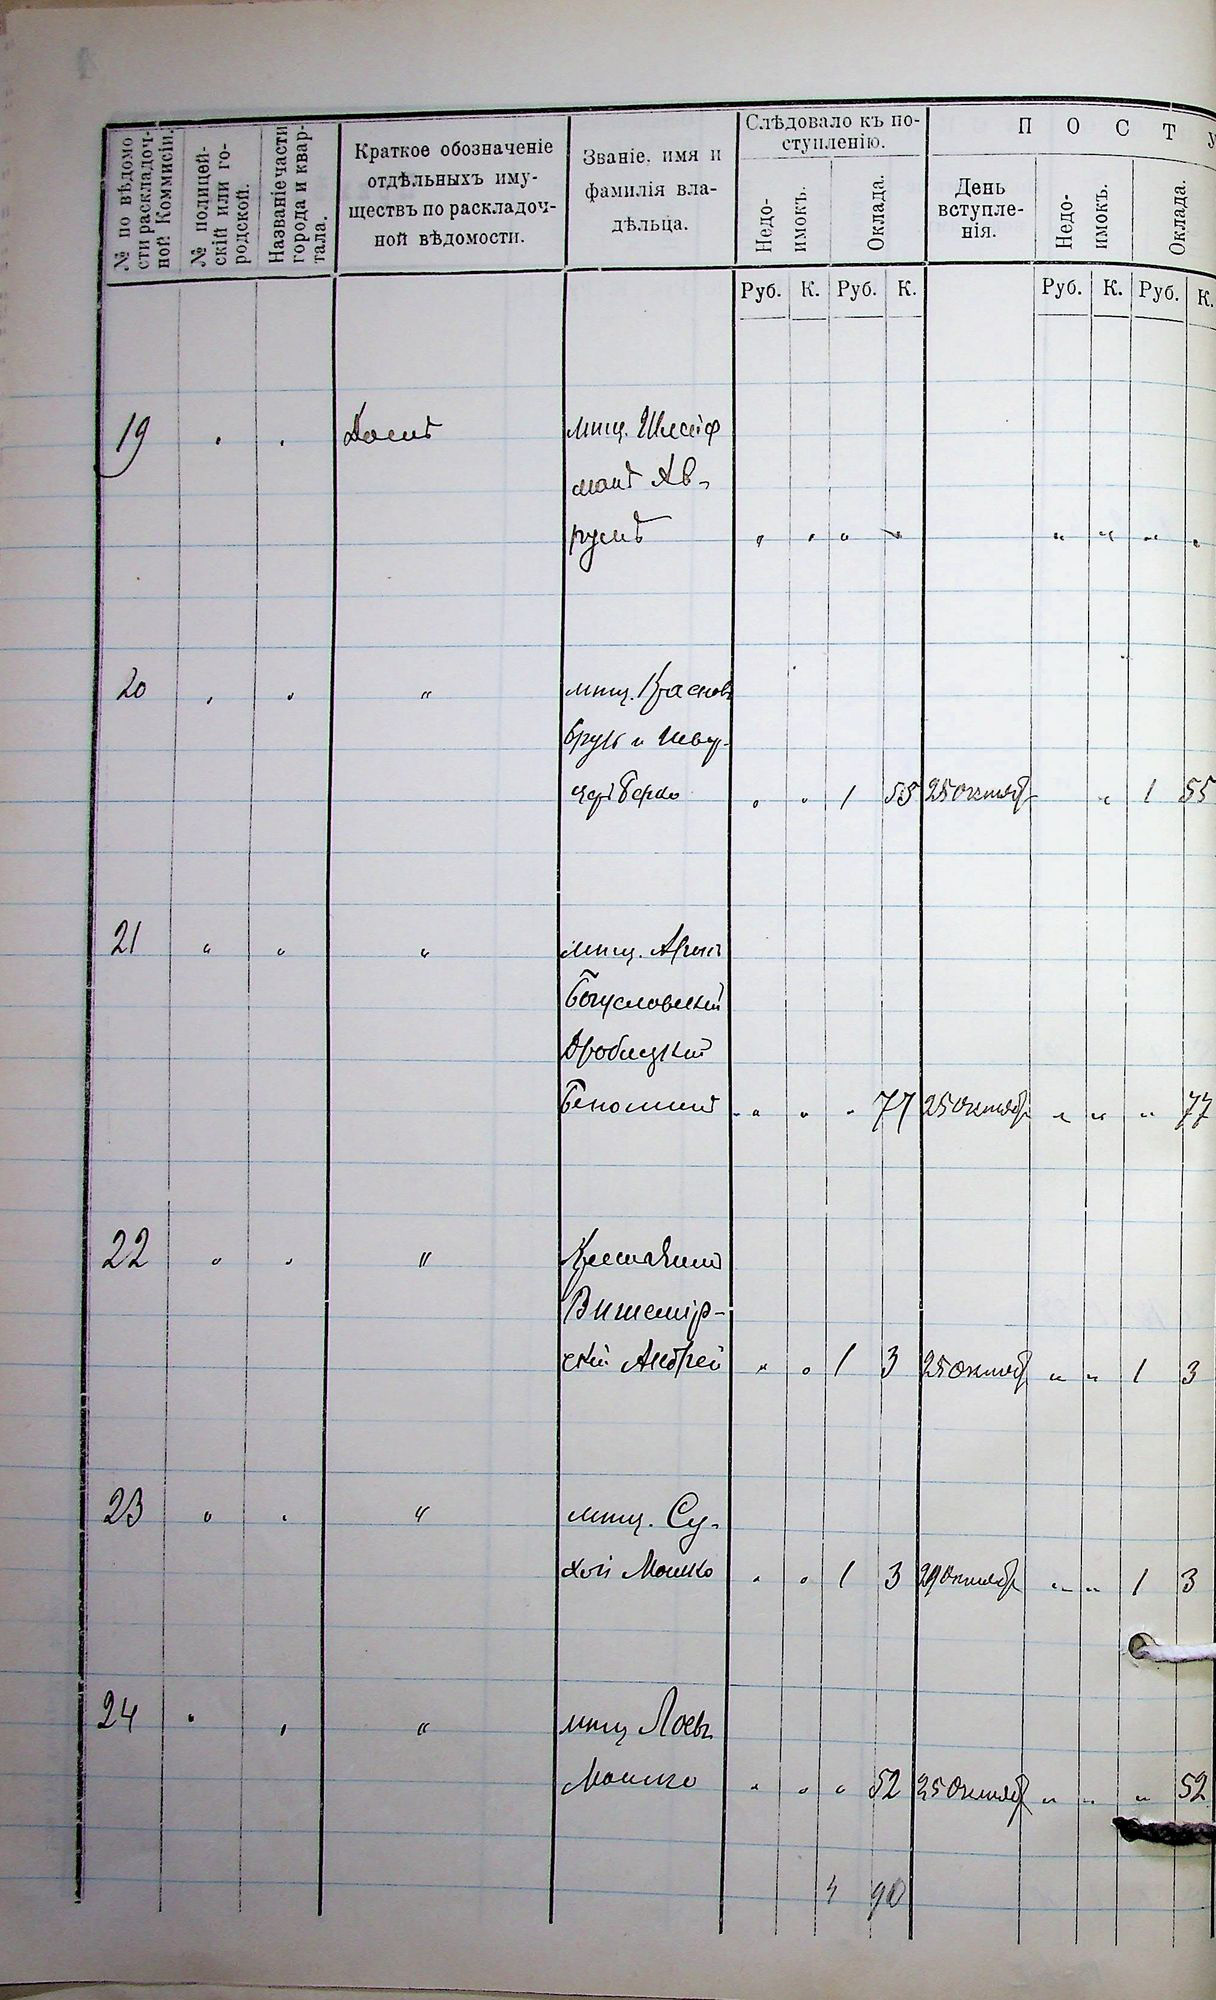 № по вѣдомо
сти раскладоч-
ной Коммисіи.
№ полицей-
скій или го-
родской.
Названіе части
города и квар-
тала.
Краткое обозначеніе
отдѣльныхъ иму-
ществъ по раскладоч-
ной вѣдомости.
Званіе, имя и
фамилія вла-
дѣльца.
Слѣдовало къ по-
ступленію.
Недо-
имокъ.
Оклада.
П О С Т У
День
вступле-
нія.
Недо-
имокъ.
Оклада.
Руб. К. Руб. К. Руб. К. Руб. К.
19 " " Домъ мѣщ.
манъ Ав-
румъ " " " " " " " "
20 " " " мѣщ.
Берко " " 1 55 25 октяб " 1 55
21 " " " мѣщ. Аронъ
Богуславскій
Дробицкій
" " " 77 25 октяб " " " 77
22 " " " Крестьянинъ
Вишемір-
скій Андрей " " 1 3 25 октяб " " 1 3
23 " " " мѣщ. Су-
хой Мошко " " 1 3 29 октяб " " 1 3
24 " " " мѣщ Лоевъ
Мошко " " " 52 25 октяб " " " 52
90